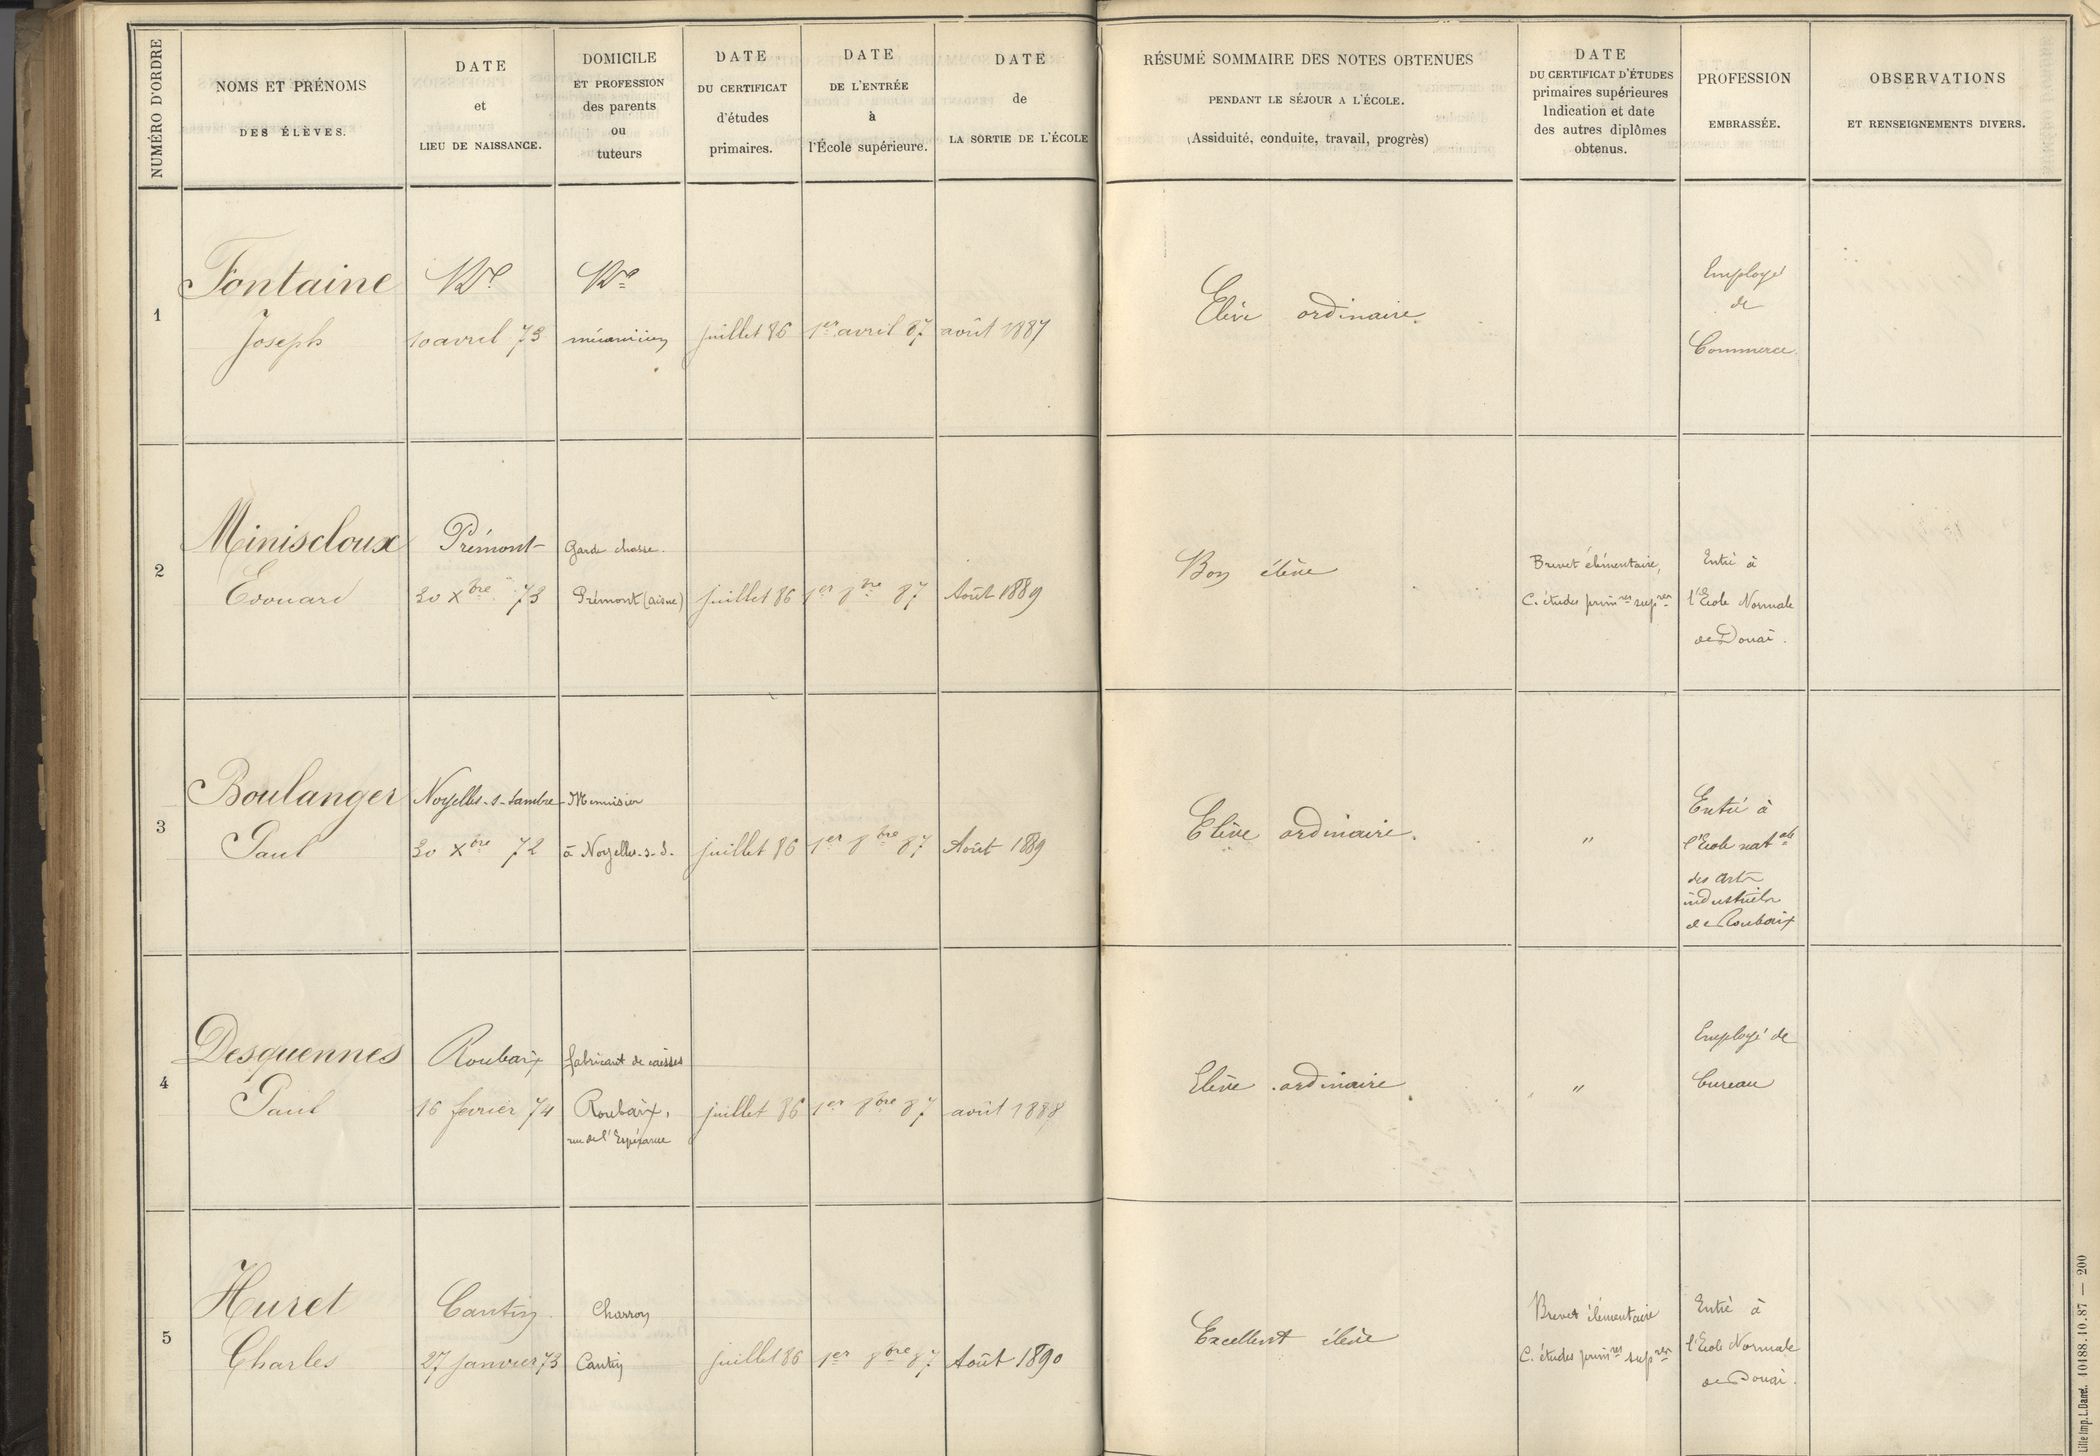 NUMÉRO D'ORDRE
NOMS ET PRÉNOMS
DES ÉLÈVES.
DATE
et
LIEU DE NAISSANCE.
DOMICILE
ET PROFESSION
des parents
ou
tuteurs
DATE
DU CERTIFICAT
d'études
primaires.
DATE
DE L'ENTRÉE
à
l'École supérieure.
DATE
de
LA SORTIE DE L'ÉCOLE
RÉSUMÉ SOMMAIRE DES NOTES OBTENUES
PENDANT LE SÉJOUR A L'ÉCOLE.
(Assiduité, conduite, travail, progrès)
DATE
DU CERTIFICAT D'ÉTUDES
primaires supérieures
Indication et date
des autres diplômes
obtenus.
PROFESSION
EMBRASSÉE.
OBSERVATIONS
ET RENSEIGNEMENTS DIVERS.
1
Fontaine
Joseph
10 avril 73
mécanicien
juillet 86
1er avril 87
août 1887
Elève ordinaire.
Employé
de
Commerce.
2
Miniscloux
Edouard
Prémont
30 Xbre 73
Garde chasse.
Prémont (aisne)
juillet 86
1er 8bre 87
Août 1889
Bon élève
Brevet élémentaire,
C. études primres supres
Entré à
l'Ecole Normale
de Douai.
3
Boulanger
Paul
Noyelles-s-Sambre
30 Xbre 72
Menuisier
à Noyelles-s-S.
juillet 86
1er 8bre 87
Août 1889
Elève ordinaire.
"
Entré à
l'Ecole natale
des Arts
industriels
de Roubaix
4
Desquennes
Paul
Roubaix
16 fevrier 74
fabricant de caisses
Roubaix,
rue de l'Espérance
juillet 86
1er 8bre 87
août 1888
Elève ordinaire
"
Employé de
bureau
5
Huret
Charles
Cantin
27 janvier 73
Charron
Cantin
juillet 86
1er 8bre 87
Août 1890
Excellent élève
Brevet élémentaire
C. études primres supres
Entré à
l'Ecole Normale
de Douai.
Lille Imp. L. Danel. 10188.10.87 — 200